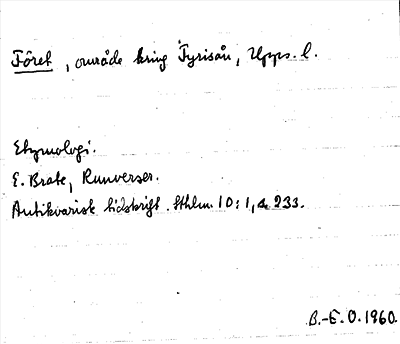 Fôret, område kring Fyrisån, Upps. l.
Etymologi.
E. Brate, Runverser.
Antikvarisk tidskrift. Sthlm. 10:1, s. 233.
B.-E. O. 1960.